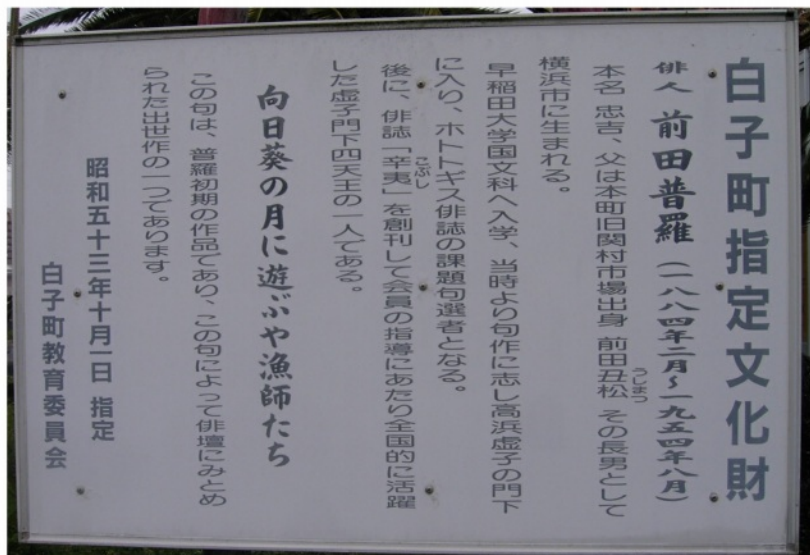 白子町指定文化財
俳人 前田普羅 (一八八四年二月～一九五四年八月)
本名 忠吉、父は本町旧関村市場出身 前田丑松 その長男として
うしまつ
横浜市に生まれる。
早稲田大学国文科へ入学、当時より句作に志し高浜虚子の門下
に入り、ホトトギス俳誌の課題句選者となる。
後に、俳誌「辛夷」を創刊して会員の指導にあたり全国的に活躍
こぶし
した虚子門下四天王の一人である。
向日葵の月に遊ぶや漁師たち
この句は、普羅初期の作品であり、この句によって俳壇にみとめ
られた出世作の一つであります。
昭和五十三年十月一日 指定
白子町教育委員会